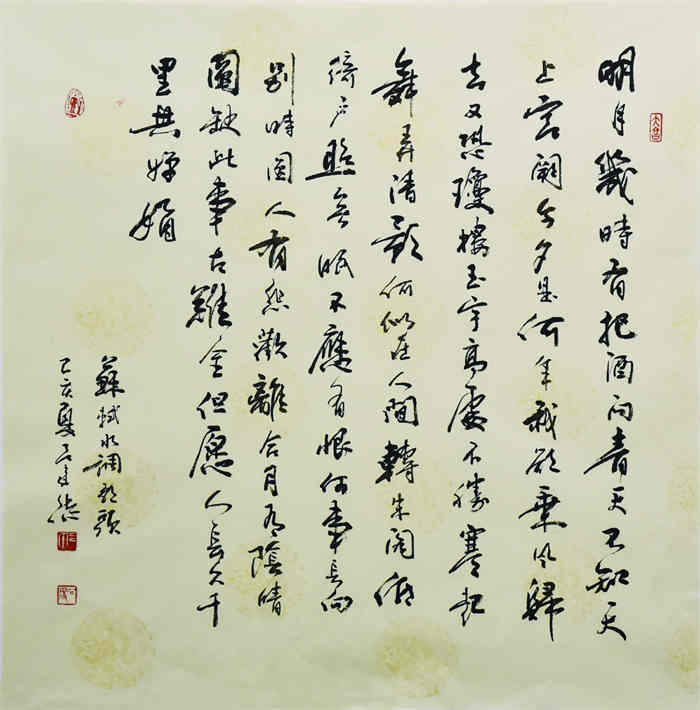 明月幾時有把酒问青天不知天
上宮闕今夕是何年我欲乘风歸
去又恐瓊樓玉宇高處不勝寒起
舞弄清影何似在人間轉朱閣低
綺户照無眠不應有恨何事長向
别時圆人有悲歡離合月有陰晴
圓缺此事古難全但愿人長久千
里共嬋娟
蘇軾水調歌頭
己亥夏